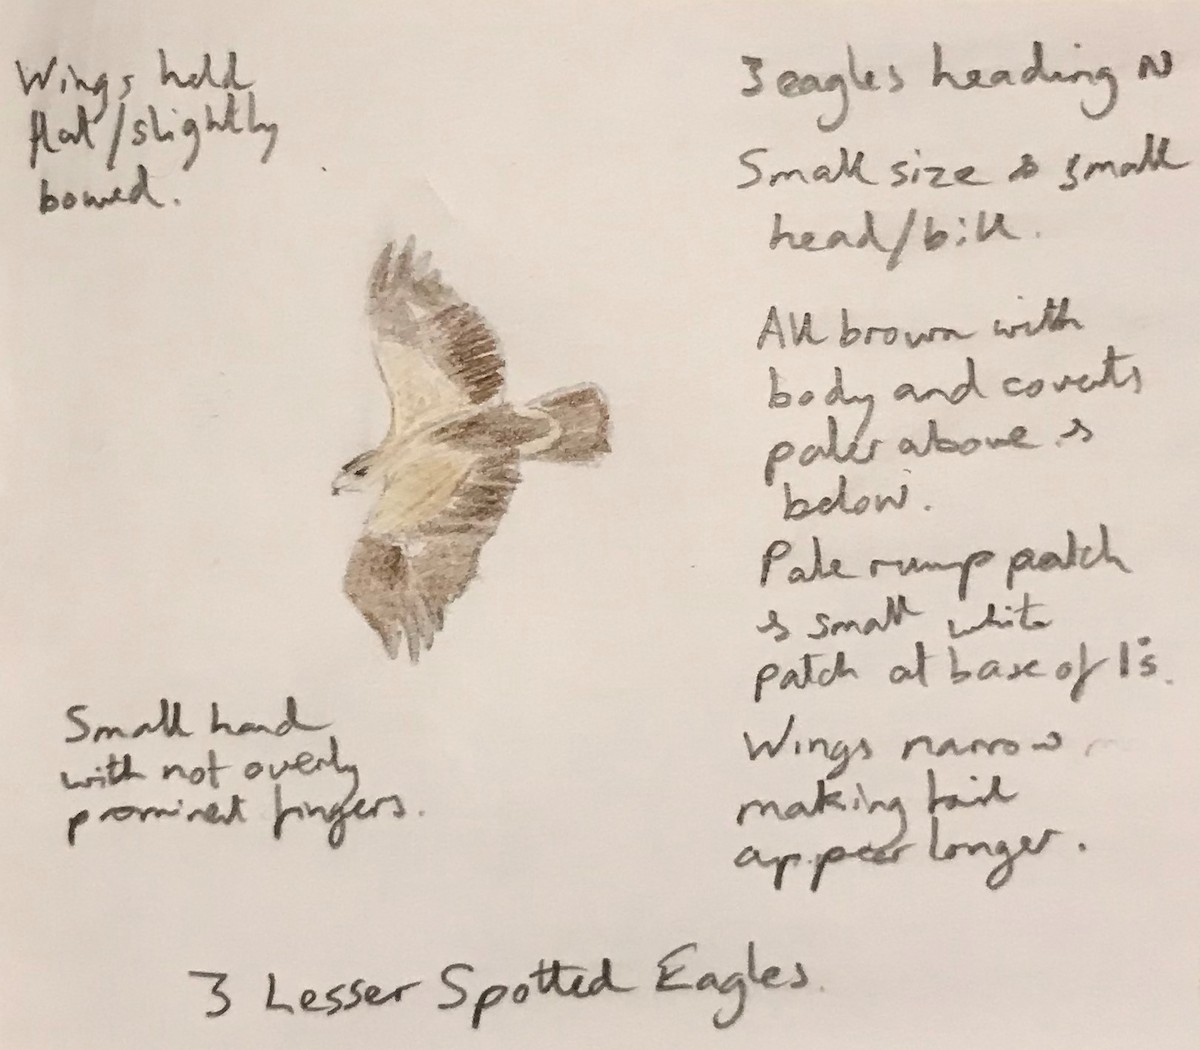 Wings held
flat/slightly
bowed.
3 eagles heading N
Small size & small
head/bill.
All brown with
body and coverts
paler above &
below.
Pale rump patch
& small white
patch at base of 1°s.
Wings narrow
making tail
appear longer.
Small hand
with not overly
prominent fingers.
3 Lesser Spotted Eagles.